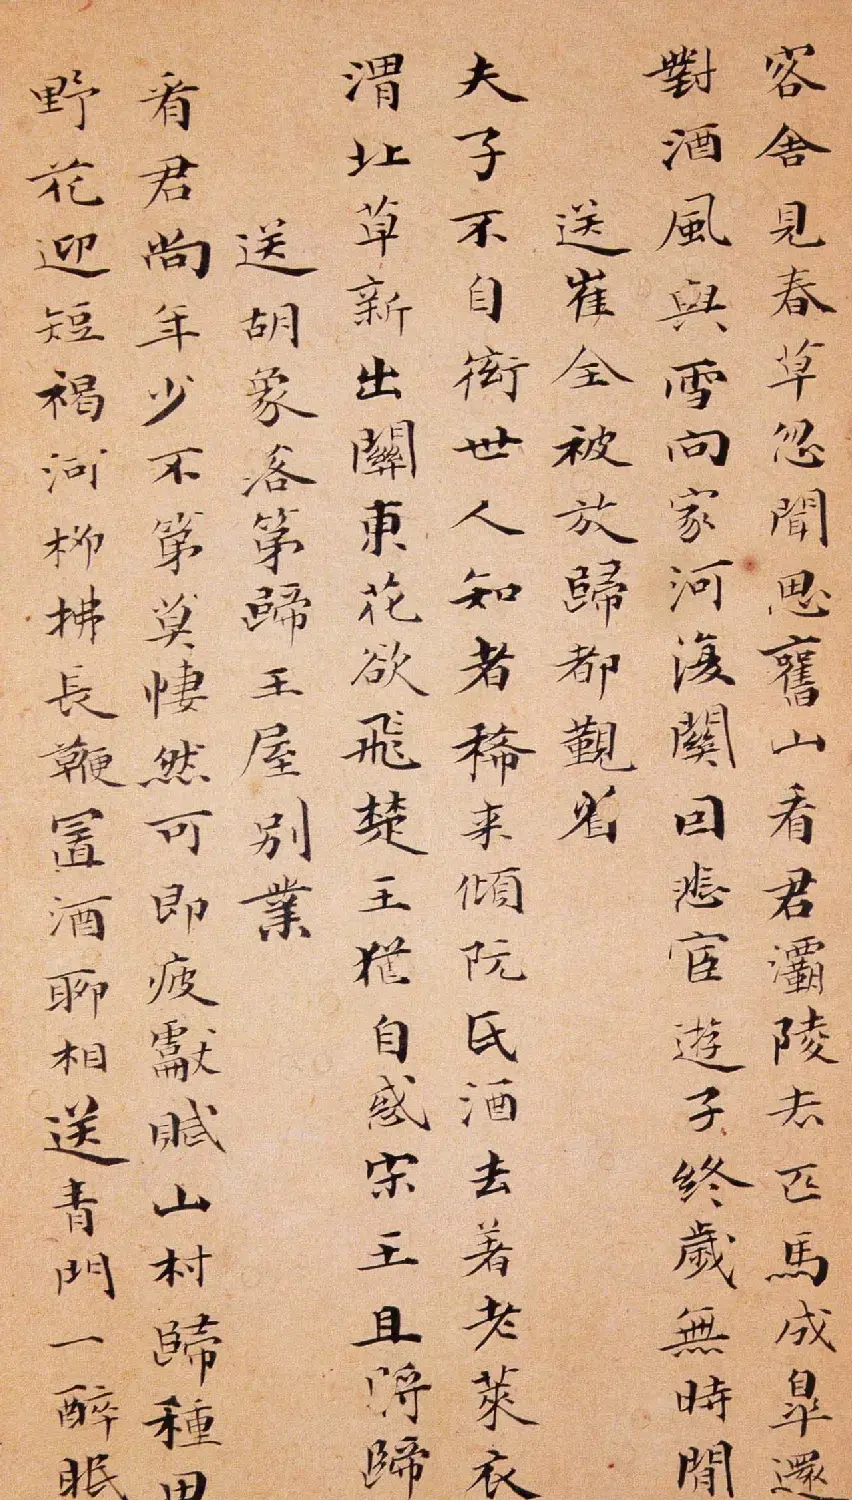 客舍見春草忽聞思舊山看君灞陵去匹馬成皐還
對酒風與雪向家河復關回悲宦遊子終歲無時閒
送崔全被放歸都覲省
夫子不自衒世人知者稀来傾阮氏酒去著老萊衣
渭北草新出關東花欲飛楚王猶自惑宋玉且將歸
送胡象落第歸王屋別業
看君尚年少不第莫悽然可即疲獻賦山村歸種田
野花迎短褐河柳拂長鞭置酒聊相送青門一醉眠